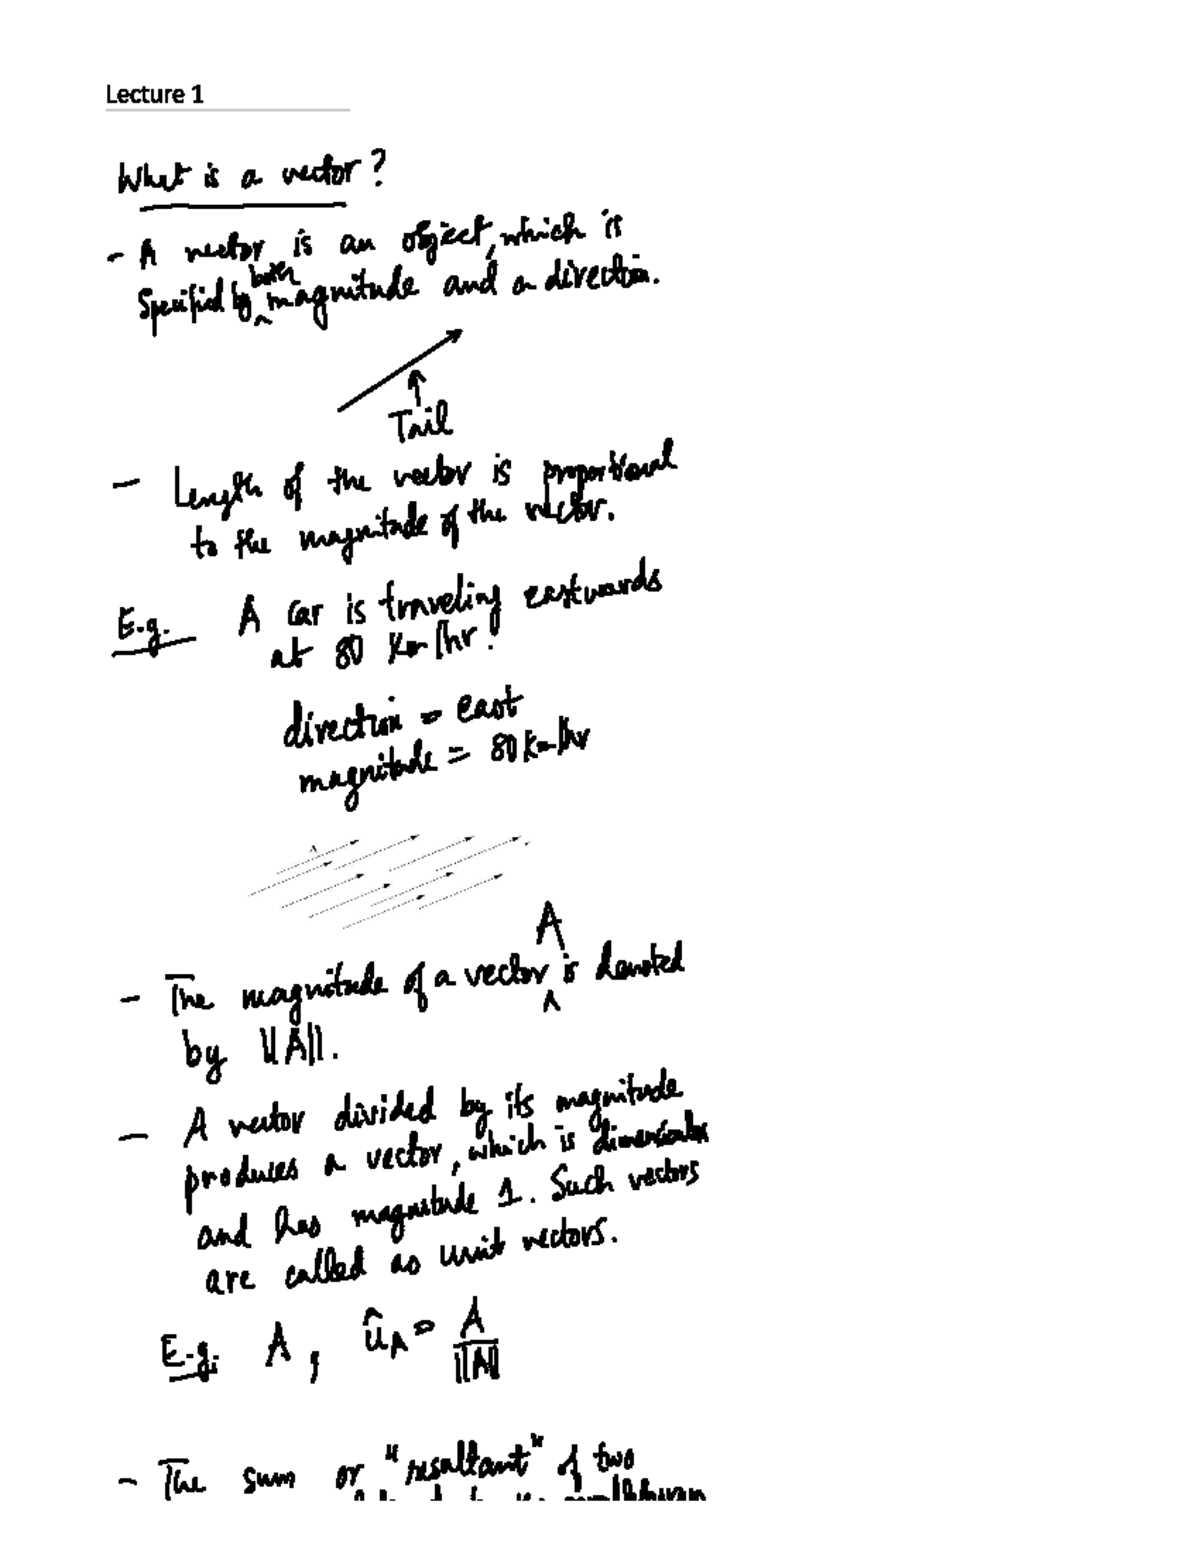 Lecture 1
What is a vector?
- A vector is an object, which is
both
specified by ^ magnitude and a direction.
Tail
- Length of the vector is proportional
to the magnitude of the vector.
E.g. A car is traveling eastwards
at 80 Km/hr.
direction = east
magnitude = 80 Km/hr
A
A
- The magnitude of a vector ^ is denoted
by ||A||.
- A vector divided by its magnitude
produces a vector, which is
and has magnitude 1. Such vectors
are called as unit vectors.
E.g. A, û_A = A / ||A||
- The sum or "resultant" of two